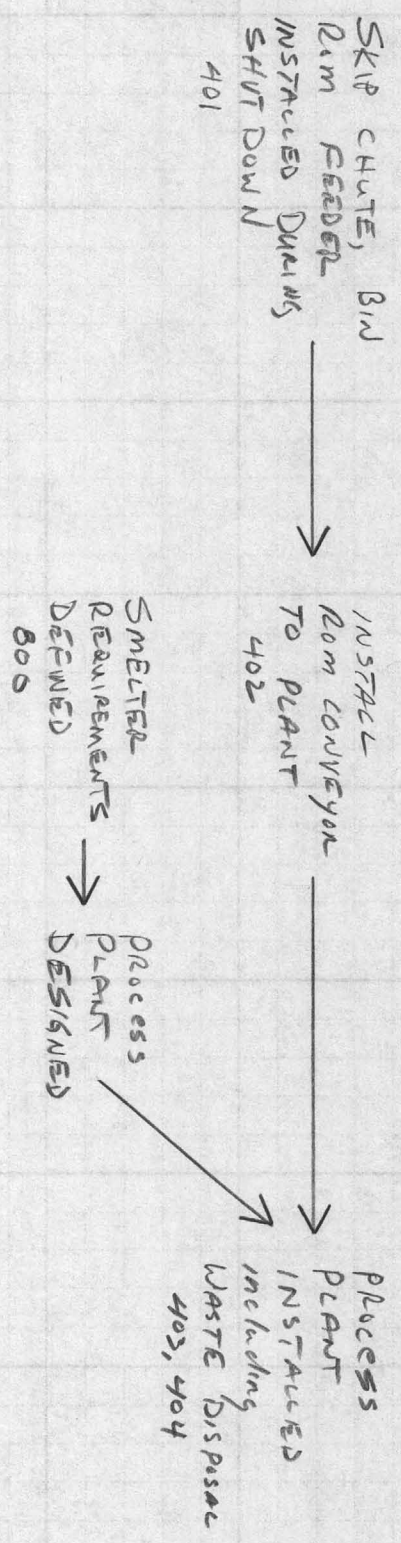 SKIP CHUTE, BIN
ROM FEEDER
INSTALLED DURING
SHUT DOWN
401
INSTALL
ROM CONVEYOR
TO PLANT
402
SMELTER
REQUIREMENTS
DEFINED
800
PROCESS
PLANT
DESIGNED
PROCESS
PLANT
INSTALLED
including
WASTE DISPOSAL
403, 404